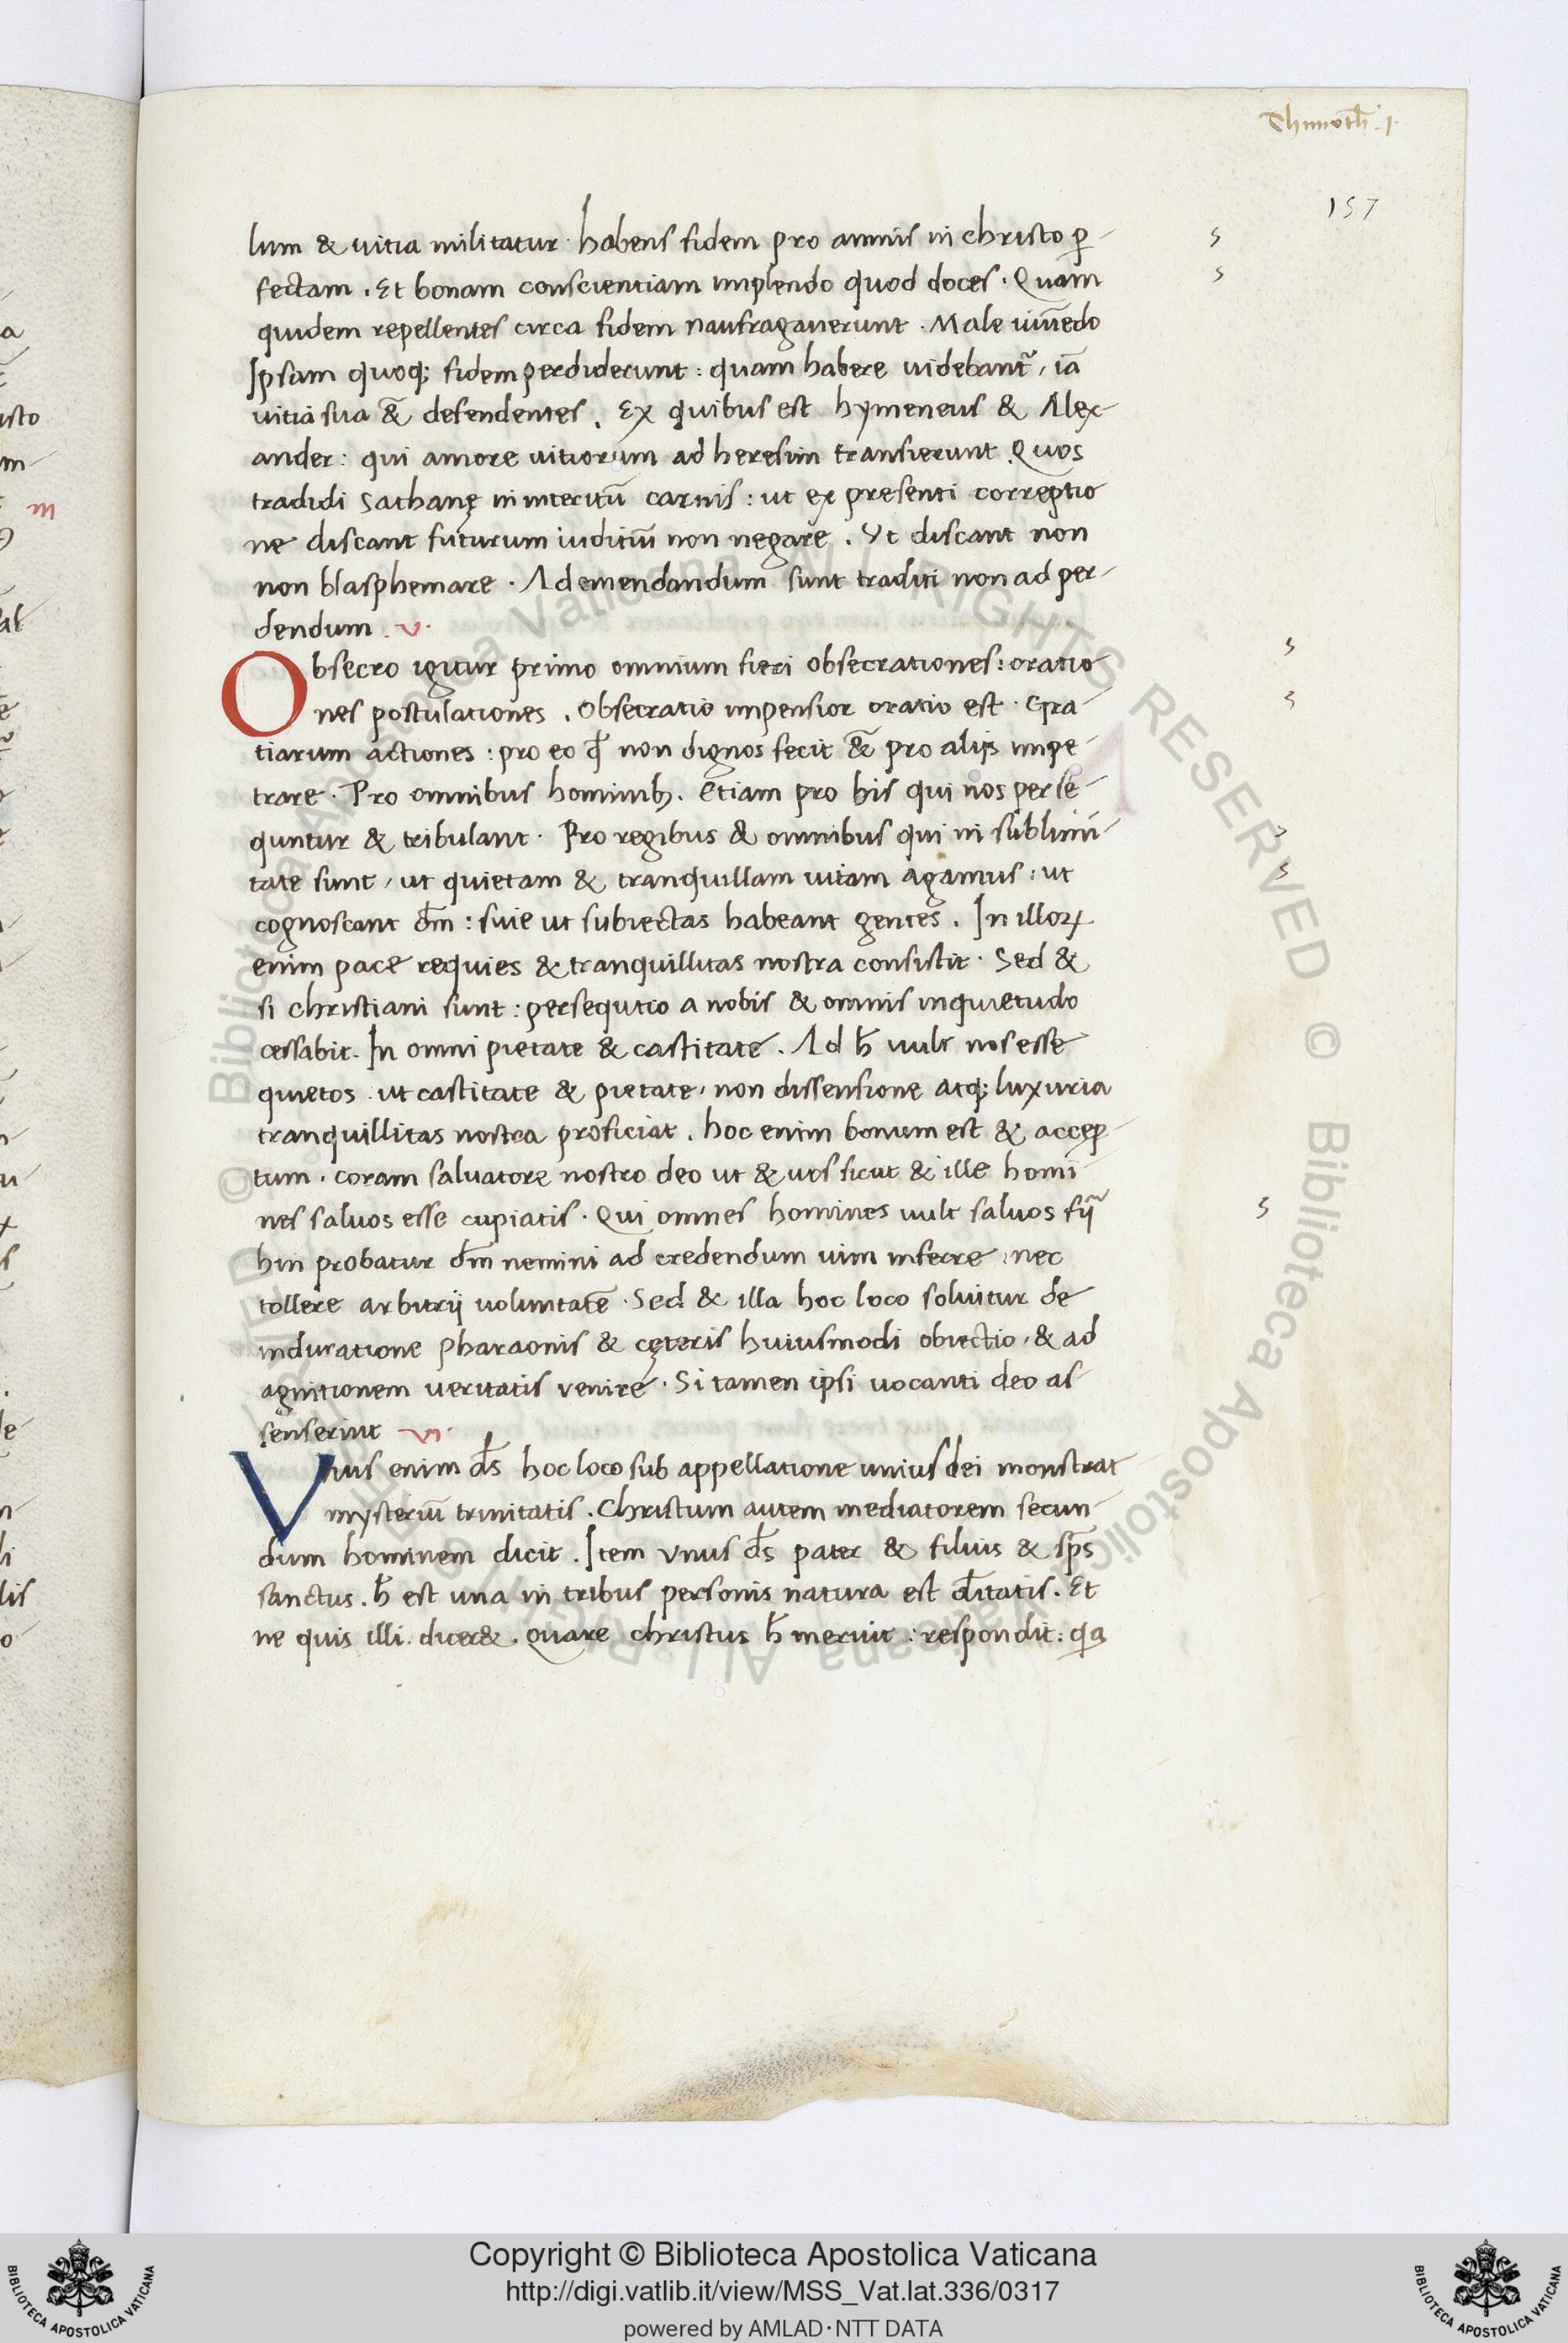 Thimoth̄. I.
157
lum & uitia militatur · habens fidem pro armis in christo ꝑ-
fectam . Et bonam conscientiam implendo quod doces . Quam
quidem repellentes circa fidem naufragauerunt . Male uiuēdo
Ipsam quoq; fidem perdiderunt : quam habere uidebant᷑ , iā
uitia sua &̄ defendentes . Ex quibus est hymeneus & Alex-
ander : qui amore uitiorum ad heresim transierunt . Quos
tradidi Sathanę in interitū carnis : ut ex presenti correptio
ne discant futurum iuditiū non negare . Ut discant non
non blasphemare . Ad emendandum sunt traditi non ad per-
dendum . v.
Obsecro igitur primo omnium fieri obsecrationes : oratio
nes postulationes . Obsecratio impensior oratio est . Gra-
tiarum actiones : pro eo ꝙ non dignos fecit &̄ pro alijs impe-
trare . Pro omnibus hominib; . Etiam pro his qui nos perse-
quntur & tribulant . Pro regibus & omnibus qui in sublimi-
tate sunt , ut quietam & tranquillam uitam agamus : ut
cognoscant dm̄ : siue ut subiectas habeant gentes . In illoꝝ
enim pace requies & tranquillitas nostra consistit . Sed &
si christiani sunt : persequtio a nobis & omnis inquietudo
cessabit . In omni pietate & castitate . Ad h̄ uult nos esse
quietos . ut castitate & pietate , non dissensione atq; luxuria
tranquillitas nostra proficiat . hoc enim bonum est & accep-
tum . coram saluatore nostro deo ut & uos sicut & ille homi-
nes saluos esse cupiatis . Qui omnes homines uult saluos fij̄
hin probatur dm̄ nemini ad credendum uim inferre , nec
tollere arbitrij uoluntatē . Sed & illa hoc loco soluitur de
induratione Pharaonis & cęteris huiusmodi obiectio , & ad
agnitionem veritatis venire . Si tamen ipsi uocanti deo as-
senserint vi.
Vnus enim ds̄ hoc loco sub appellatione unius dei monstrat
mysteriū trinitatis . Christum autem mediatorem secun-
dum hominem dicit . Item vnus ds̄ pater & filius & sps̄
sanctus . h̄ est una in tribus personis natura est d̄itatis . Et
ne quis illi . dicer& . Quare christus h̄ meruit : respondit : qa
Copyright © Biblioteca Apostolica Vaticana
http://digi.vatlib.it/view/MSS_Vat.lat.336/0317
powered by AMLAD·NTT DATA